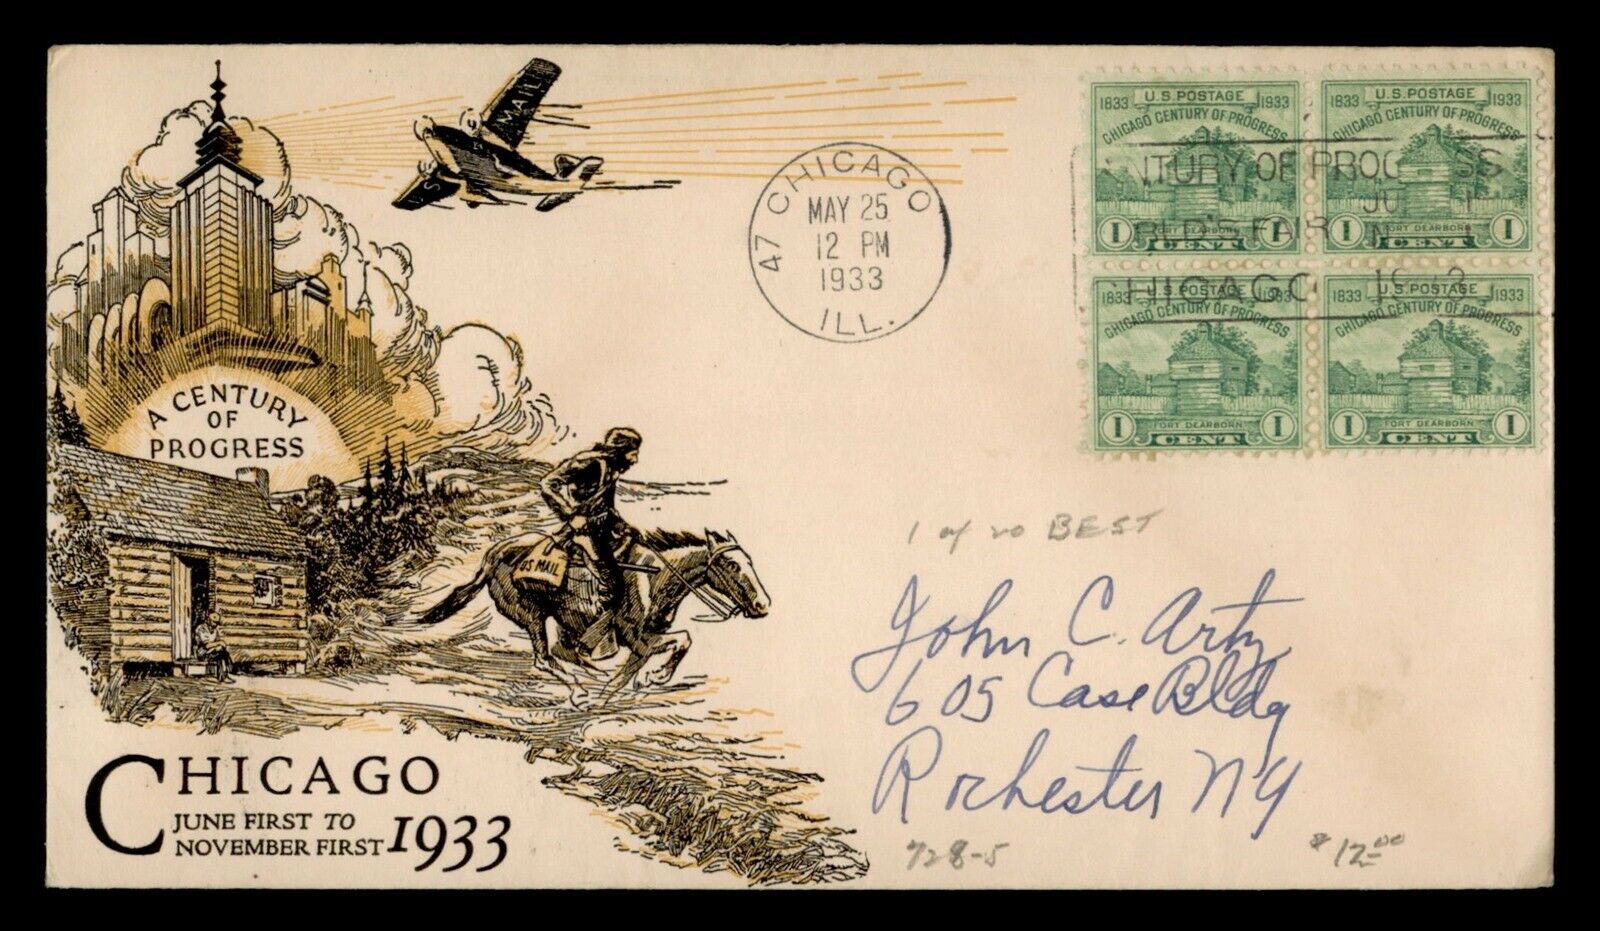 U.S. MAIL
A CENTURY
OF
PROGRESS
US MAIL
CHICAGO
JUNE FIRST TO
NOVEMBER FIRST 1933
47 CHICAGO
MAY 25
12 PM
1933
ILL.
1833 U.S. POSTAGE 1933
CHICAGO CENTURY OF PROGRESS
FORT DEARBORN
1 CENT 1
1833 U.S. POSTAGE 1933
CHICAGO CENTURY OF PROGRESS
FORT DEARBORN
1 CENT 1
1833 U.S. POSTAGE 1933
CHICAGO CENTURY OF PROGRESS
FORT DEARBORN
1 CENT 1
1833 U.S. POSTAGE 1933
CHICAGO CENTURY OF PROGRESS
FORT DEARBORN
1 CENT 1
NTURY OF PROG SS
JU 1
FAIR N
HICAGO 19 3
1 of 20 BEST
John C. Artz
605 Case Bldg
Rochester NY
728-5
$12.00